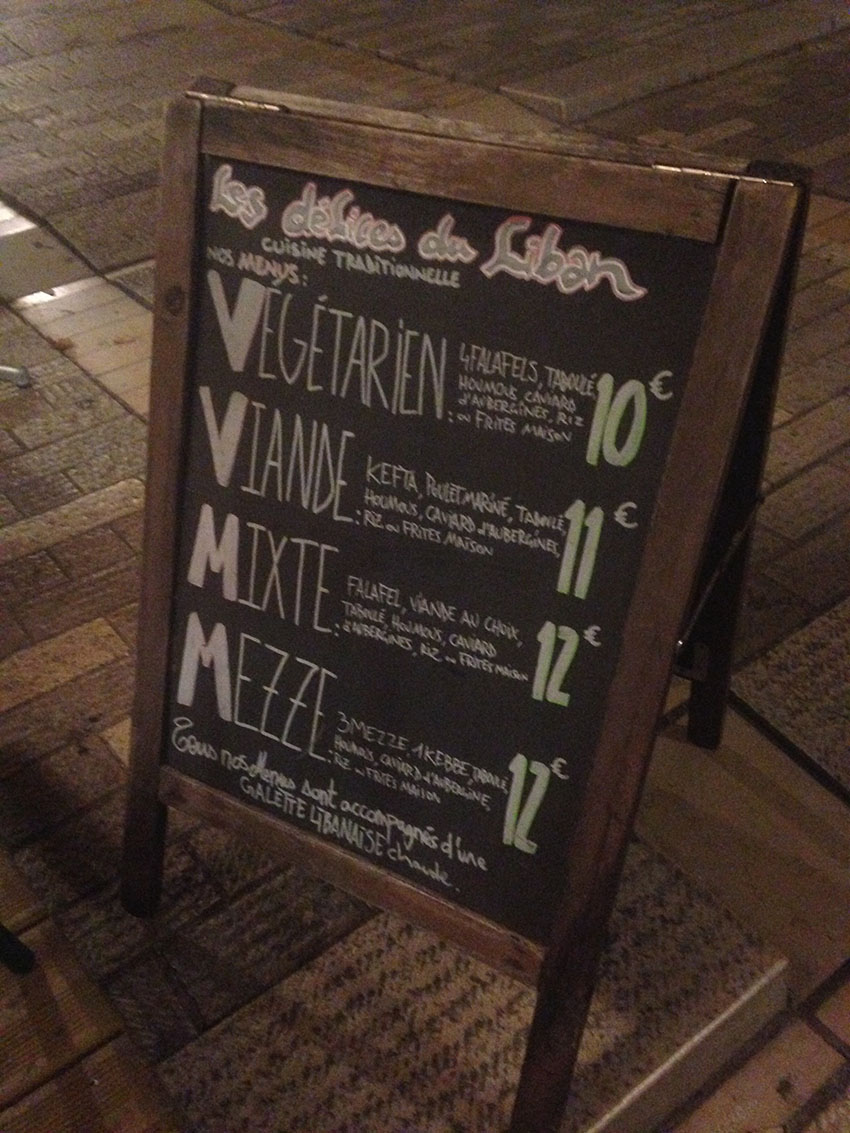 Les délices du Liban
CUISINE TRADITIONNELLE
NOS MENUS :
VEGÉTARIEN :
4 FALAFELS, TABOULÉ,
HOUMOUS, CAVIAR
d'AUBERGINES, RIZ
ou FRITES MAISON
10€
VIANDE :
KEFTA, POULET MARINÉ, TABOULÉ,
HOUMOUS, CAVIARD d'AUBERGINES,
RIZ ou FRITES MAISON
11€
MIXTE :
FALAFEL, VIANDE AU CHOIX,
TABOULÉ, HOUMOUS, CAVIARD
d'AUBERGINES, RIZ ou FRITES MAISON
12€
MEZZE :
3 MEZZE, 1 KEBBE, TABOULÉ,
HOUMOUS, CAVIARD d'AUBERGINE,
RIZ ou FRITES MAISON
12€
Tous nos Menus sont accompagnés d'une
GALETTE LIBANAISE chaude.